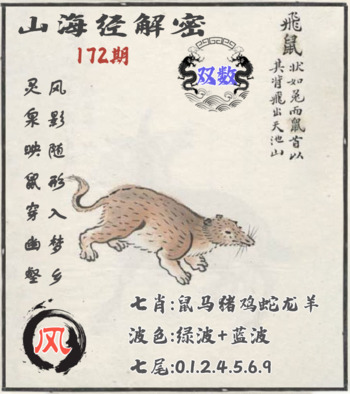 山海经解密
172期
双数
飛鼠
状如兔而鼠首以
其背飛出天池山
风影随形入梦乡
灵泉映鼠穿幽壑
风
七肖:鼠马猪鸡蛇龙羊
波色:绿波+蓝波
七尾:0.1.2.4.5.6.9